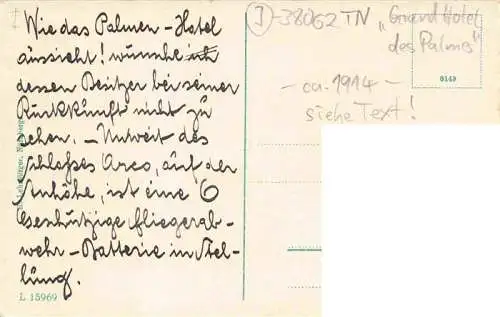 Wie das Palmen-Hotel
aussieht! wünsche ich
dessen Besitzer bei seiner
Rückkunft nicht zu
sehen. – Unweit des
Schloßes Arco, auf der
Anhöhe, ist eine 6
Geschützige Fliegerab-
wehr-Batterie in Stel-
lung.
L 15969
I -38062 TN "Grand Hotel
des Palmes"
- ca. 1914 -
siehe Text!
0149